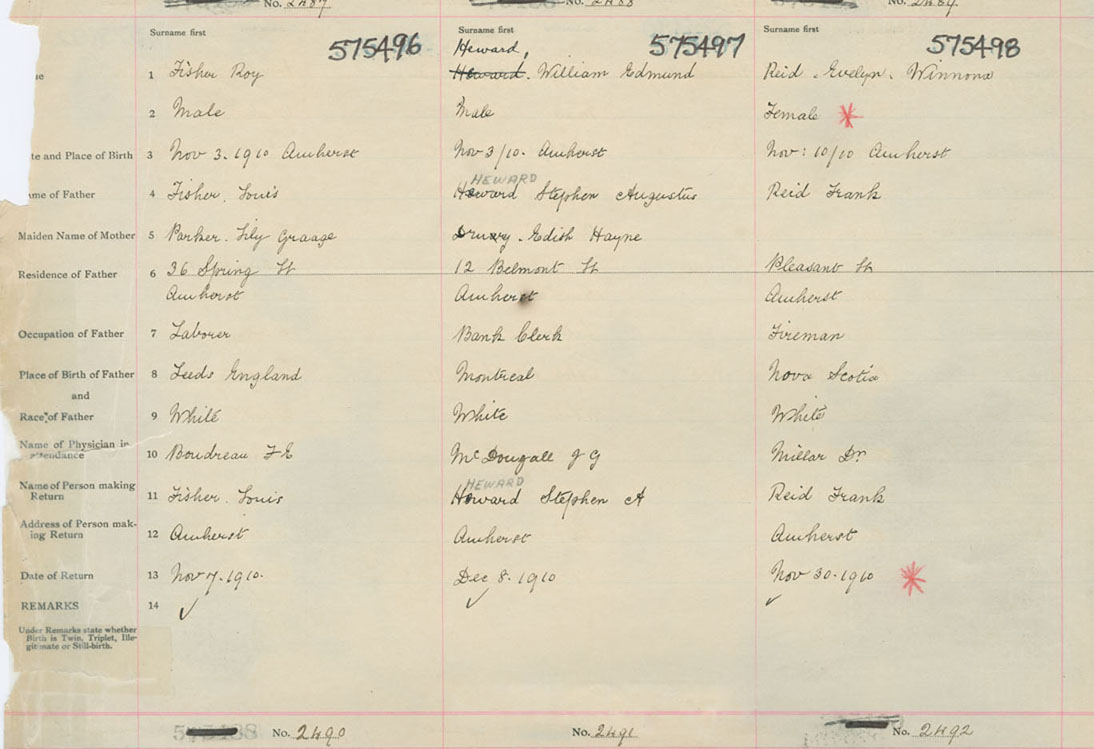 No. 2487 No. 2488 No. 2489
Surname first Surname first Surname first
575496 Heward, 575497 575498
1 Fisher Roy Heward. William Edmund Reid. Evelyn. Winnona
2 Male Male Female
Date and Place of Birth 3 Nov 3. 1910 Amherst Nov 3/10. Amherst Nov: 10/10 Amherst
HEWARD
Name of Father 4 Fisher. Louis Howard Stephen Augustus Reid Frank
Maiden Name of Mother 5 Parker. Lily Graage Drury. Edith Hayne
Residence of Father 6 36 Spring St 12 Belmont St Pleasant St
Amherst Amherst Amherst
Occupation of Father 7 Laborer Bank Clerk Fireman
Place of Birth of Father 8 Leeds England Montreal Nova Scotia
and
Race of Father 9 White White White
Name of Physician in
attendance 10 Boudreau F E McDougall J G Millar Dr
Name of Person making HEWARD
Return 11 Fisher. Louis Howard Stephen A Reid Frank
Address of Person mak-
ing Return 12 Amherst Amherst Amherst
Date of Return 13 Nov 7. 1910. Dec 8. 1910 Nov 30. 1910
REMARKS 14 ✓ ✓ ✓
Under Remarks state whether
Birth is Twin, Triplet, Ille-
gitimate or Still-birth.
No. 2490 No. 2491 No. 2492